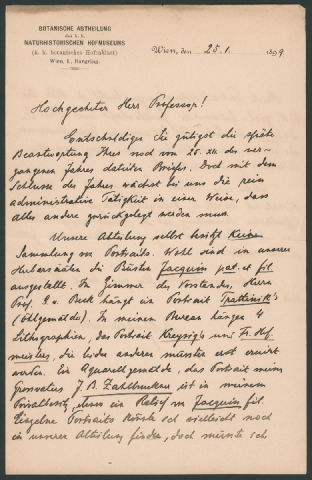 BOTANISCHE ABTHEILUNG
des k. k.
NATURHISTORISCHEN HOFMUSEUMS
(k. k. botanisches Hofkabinet)
Wien, I., Burgring.
Wien, den 25. 1. 1899
Hochgeehrter Herr Professor!
Entschuldigen Sie gütigst die späte
Beantwortung Ihres noch vom 28. XII. des ver-
gangenen Jahres datirten Briefes. Doch mit dem
Schlusse des Jahres wächst bei uns die rein
administrative Tätigkeit in einer Weise, dass
alles andere zurückgelegt werden muss.
Unsere Abteilung selbst besitzt keine
Sammlung von Portraits. Wohl sind in unseren
Herbarsälen die Büsten Jacquin pat. et fil.
ausgestellt. Im Zimmer des Vorstandes, Herrn
Prof. G. v. Beck hängt ein Portrait Trattinik's
(Ölgemälde). In meinem Bureau hängen 4
Lithographien, das Portrait Kreysig's und Fr. Hof-
meister, die beiden anderen müssten erst eruirt
werden. Ein Aquarellgemälde, das Portrait mein
Grossvaters J. B. Zahlbruckner ist in meinem
Privatbesitz, ein Relief von Jacquin fil.
Einzelne Portraits dürfte ich vielleicht noch
in unserer Abteilung finden, doch müsste ich